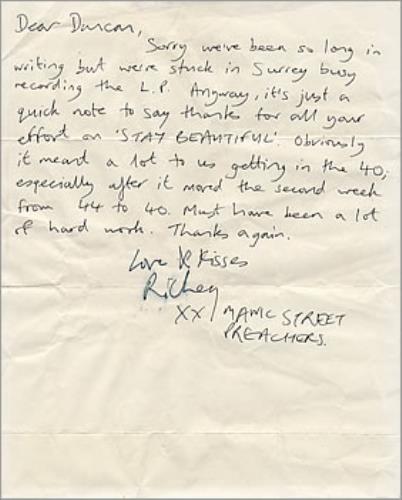 Dear Duncan,
Sorry we've been so long in
writing but we're stuck in Surrey busy
recording the L.P. Anyway, it's just a
quick note to say thanks for all your
effort on 'STAY BEAUTIFUL'. Obviously
it meant a lot to us getting in the 40,
especially after it moved the second week
from 44 to 40. Must have been a lot
of hard work. Thanks again.
Love & Kisses
Richey
XX MANIC STREET
PREACHERS.